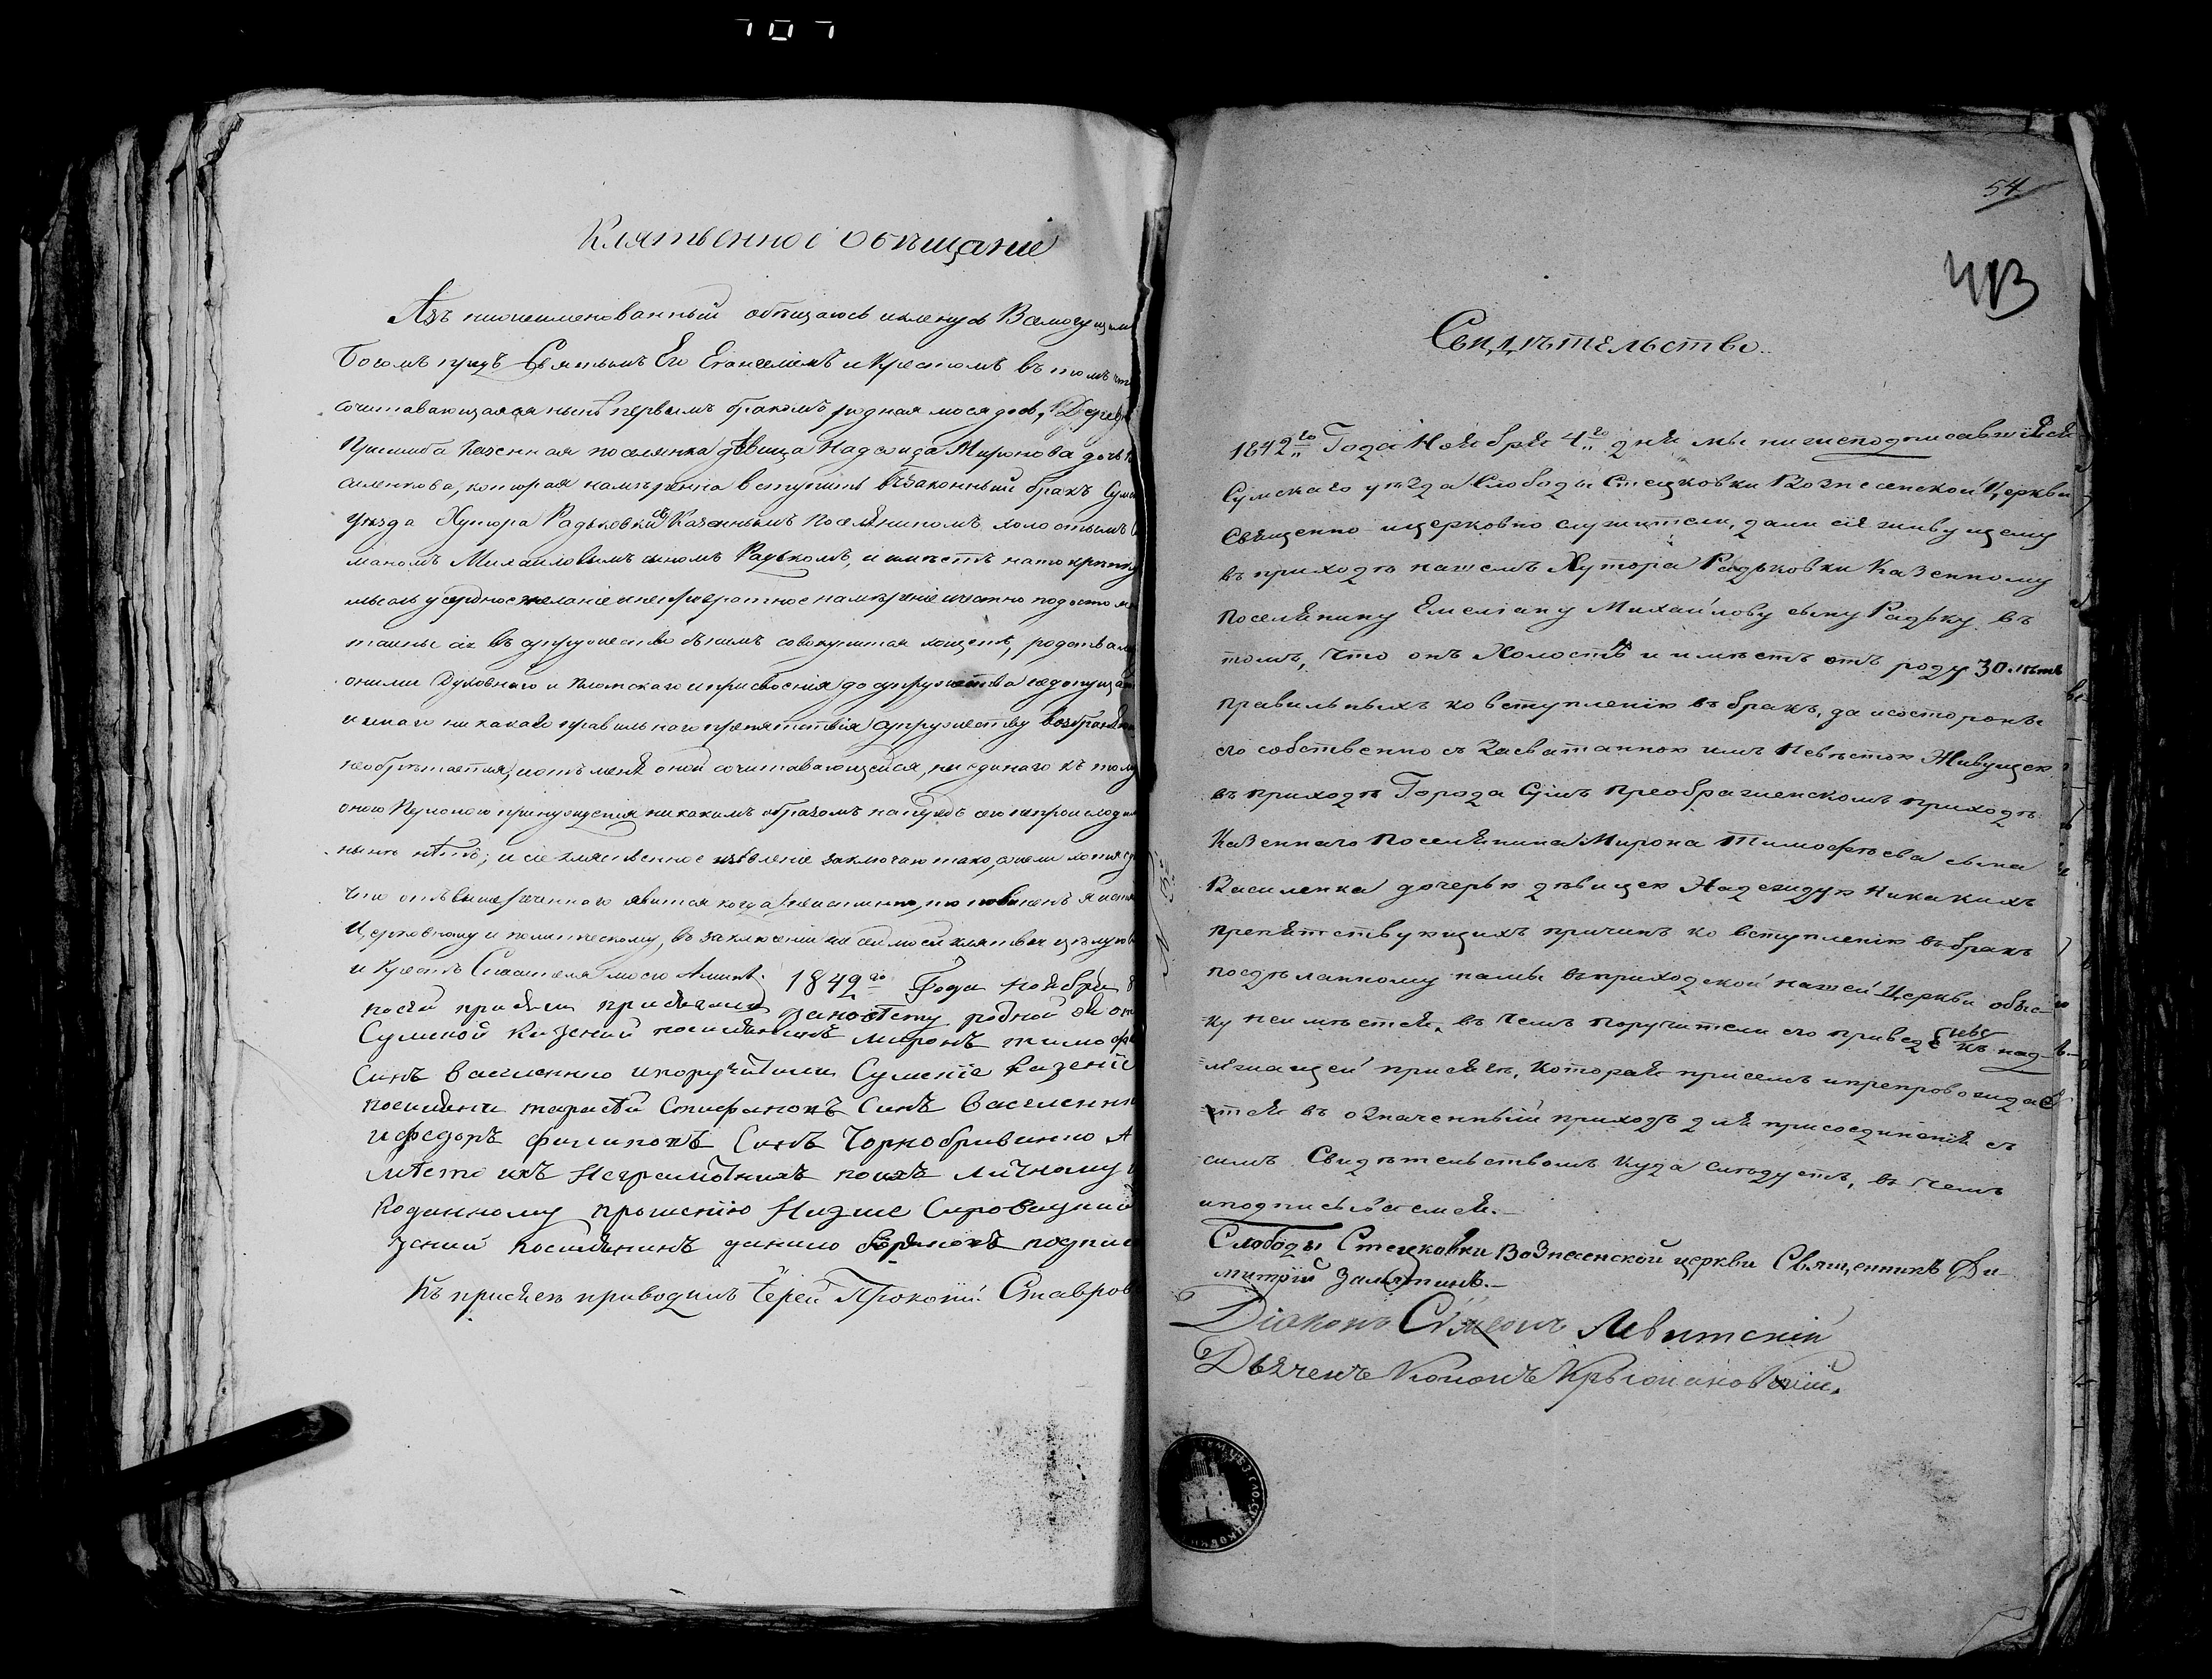 707
Клятвенное обѣщание
Азъ нижеименованный обѣщаюсь и кленусь Всемогущимъ
Богомъ предъ Святымъ Его Евангелiемъ и Крестомъ въ томъ что
сочитавающаяся нынѣ первымъ бракомъ родная моя дочь, Деревни
казенная поселянка дѣвица Надежда Миронова дочь
силенкова, которая намѣренна вступить въ законный бракъ Сумс
уѣзда Хутора Радьковки съ Казеннымъ поселяниномъ холостымъ
маномъ Михаиловымъ сыномъ Радькомъ, и имѣетъ на то крепкую
мысль усердное желание и непревратное намѣрение и
таины ся въ супружество съ нимъ совокупится хощетъ, родства
оными Духовнаго и Плотскаго и присвоения до супружества недопущаю
и инаго никакаго правильнаго препятствiя супружеству возбраняю
необрѣтается, и отъ менѣ оной сочитавающейся, ни единаго къ тому
оного принуждения никакимъ образомъ не происходи
нынѣ нѣтъ; и сiе клятвенное изъявление заключаю тако, ежели хотя
что отъ вышереченнаго явится когда неистинно, то повиненъ я
Церковному и политическому, въ заключении же сей моей клятвы цѣлую
и Крестъ Спасителя моего Аминь. 1842го Года Ноября
посей присяги присягалъ родной ея от
Сумской Казений поселянинъ миронъ тимоф
Синъ василенко и поручители Сумскiе казенiе
поселяни тарасъй Стифановъ Синъ василенк
и федоръ филиповъ Синъ Чорнобривинко А
мѣсто ихъ Неграмотнихъ по ихъ личному
прошению Нижше Сировацкий
зений поселянинъ данило подпис
Къ присягѣ приводилъ Iерей Прокопiй Ставров
54
413
Свидѣтельство.
1842го Года Ноября 4го дня мы нижеподписавшiеся
Сумскаго уѣзда Слободы Стецковки Вознесенской Церкви
Священно и церковно служители, дали сiе живущему
въ приходѣ нашемъ Хутора Радьковки Казенному
Поселянину Емелiану Михайлову сыну Радьку въ
томъ, что онъ Холостъ и имѣетъ отъ роду 30 лѣтъ
правильныхъ ко вступленiю въ бракъ, да и состороны
его собственно съ Засватанною имъ Невѣстою Живущею
въ приходѣ Города Сумъ Преображенскомъ приходѣ
Казеннаго Поселянина Мирона Тимофѣева сына
Василенка дочерью дѣвицею Надеждою Никакихъ
препятствующихъ причинъ ко вступленiю въ бракъ
посдѣланному нами въ приходской нашей Церкви обыс-
ку неимѣется, въ чемъ поручители его приведены къ над-
лежащей присягѣ, которая присемъ и препровождае
тся въ означенный приходъ для присоединенiя съ
симъ Свидѣтельствомъ Куда слѣдуетъ, въ чемъ
и подписываемся.
Слободы Стецковки Вознесенской церкви Священникъ Ди-
митрiй Замятинъ.
Дiаконъ Сѵмеонъ Левитскiй
Дьячекъ Кононъ